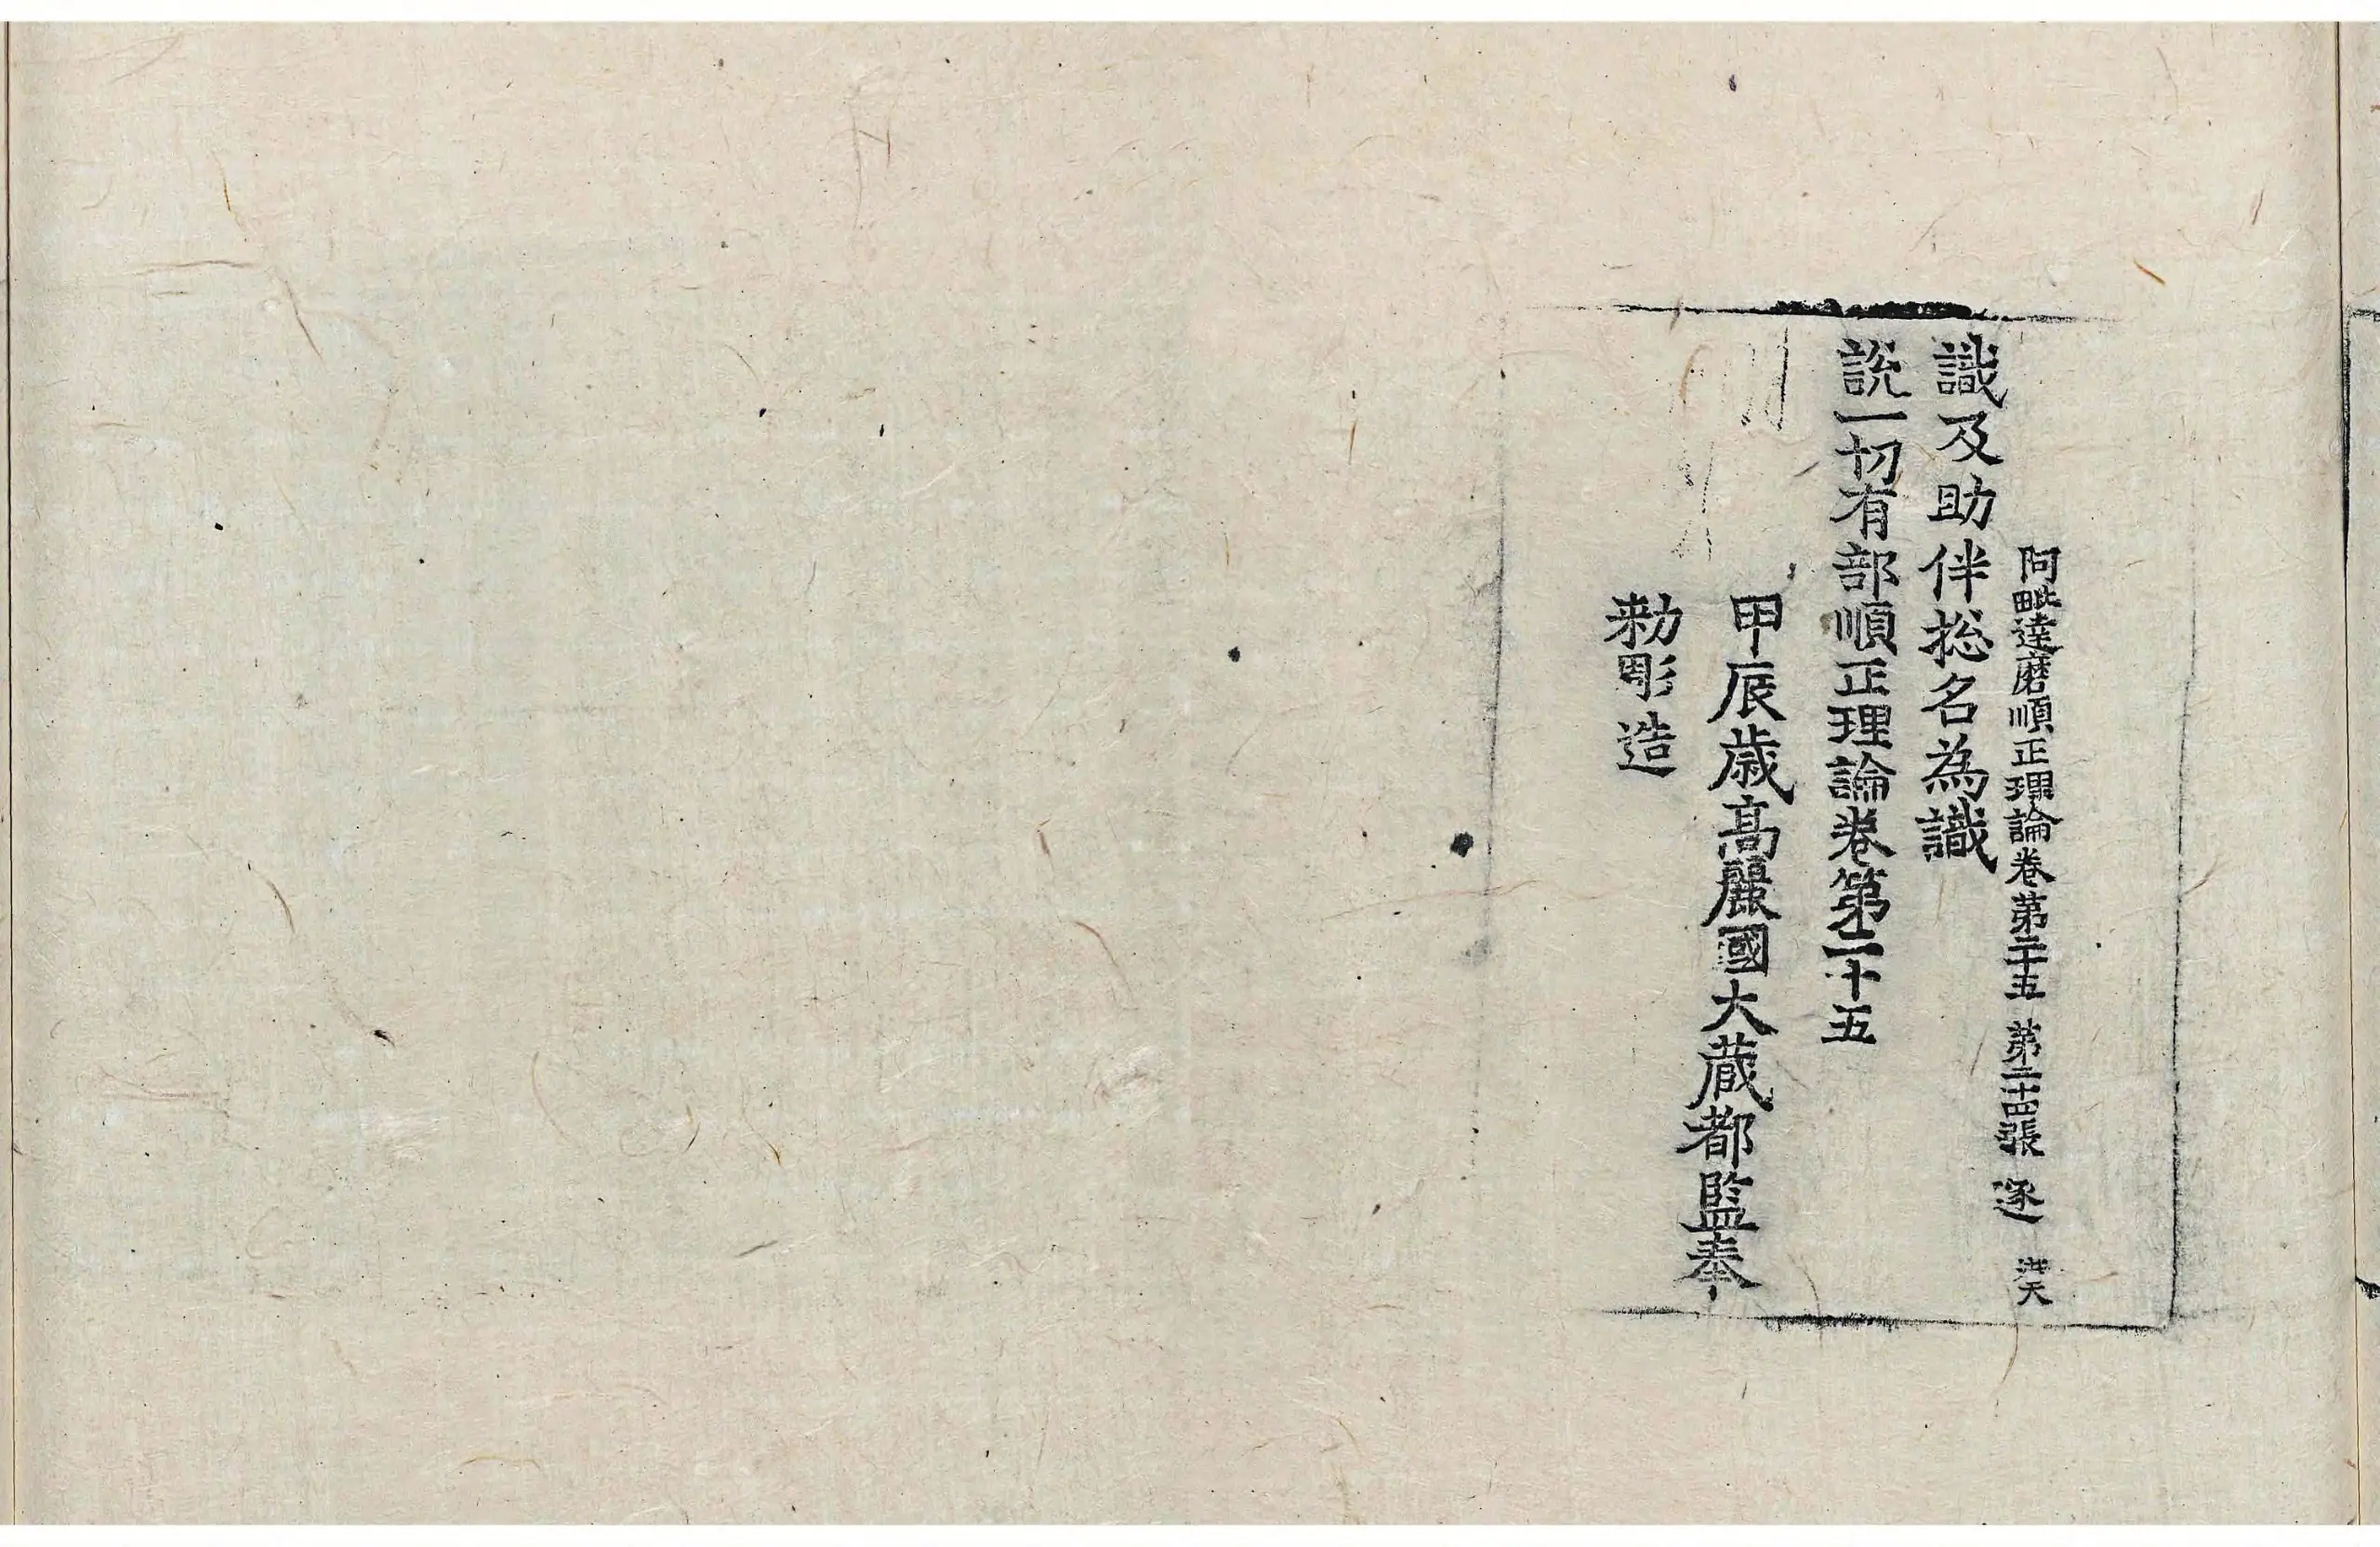 阿毗達磨順正理論卷第二十五 第二十四張 逐 洪天
識及助伴揔名為識
說一切有部順正理論卷第二十五
甲辰歲高麗國大藏都監奉
勅彫造